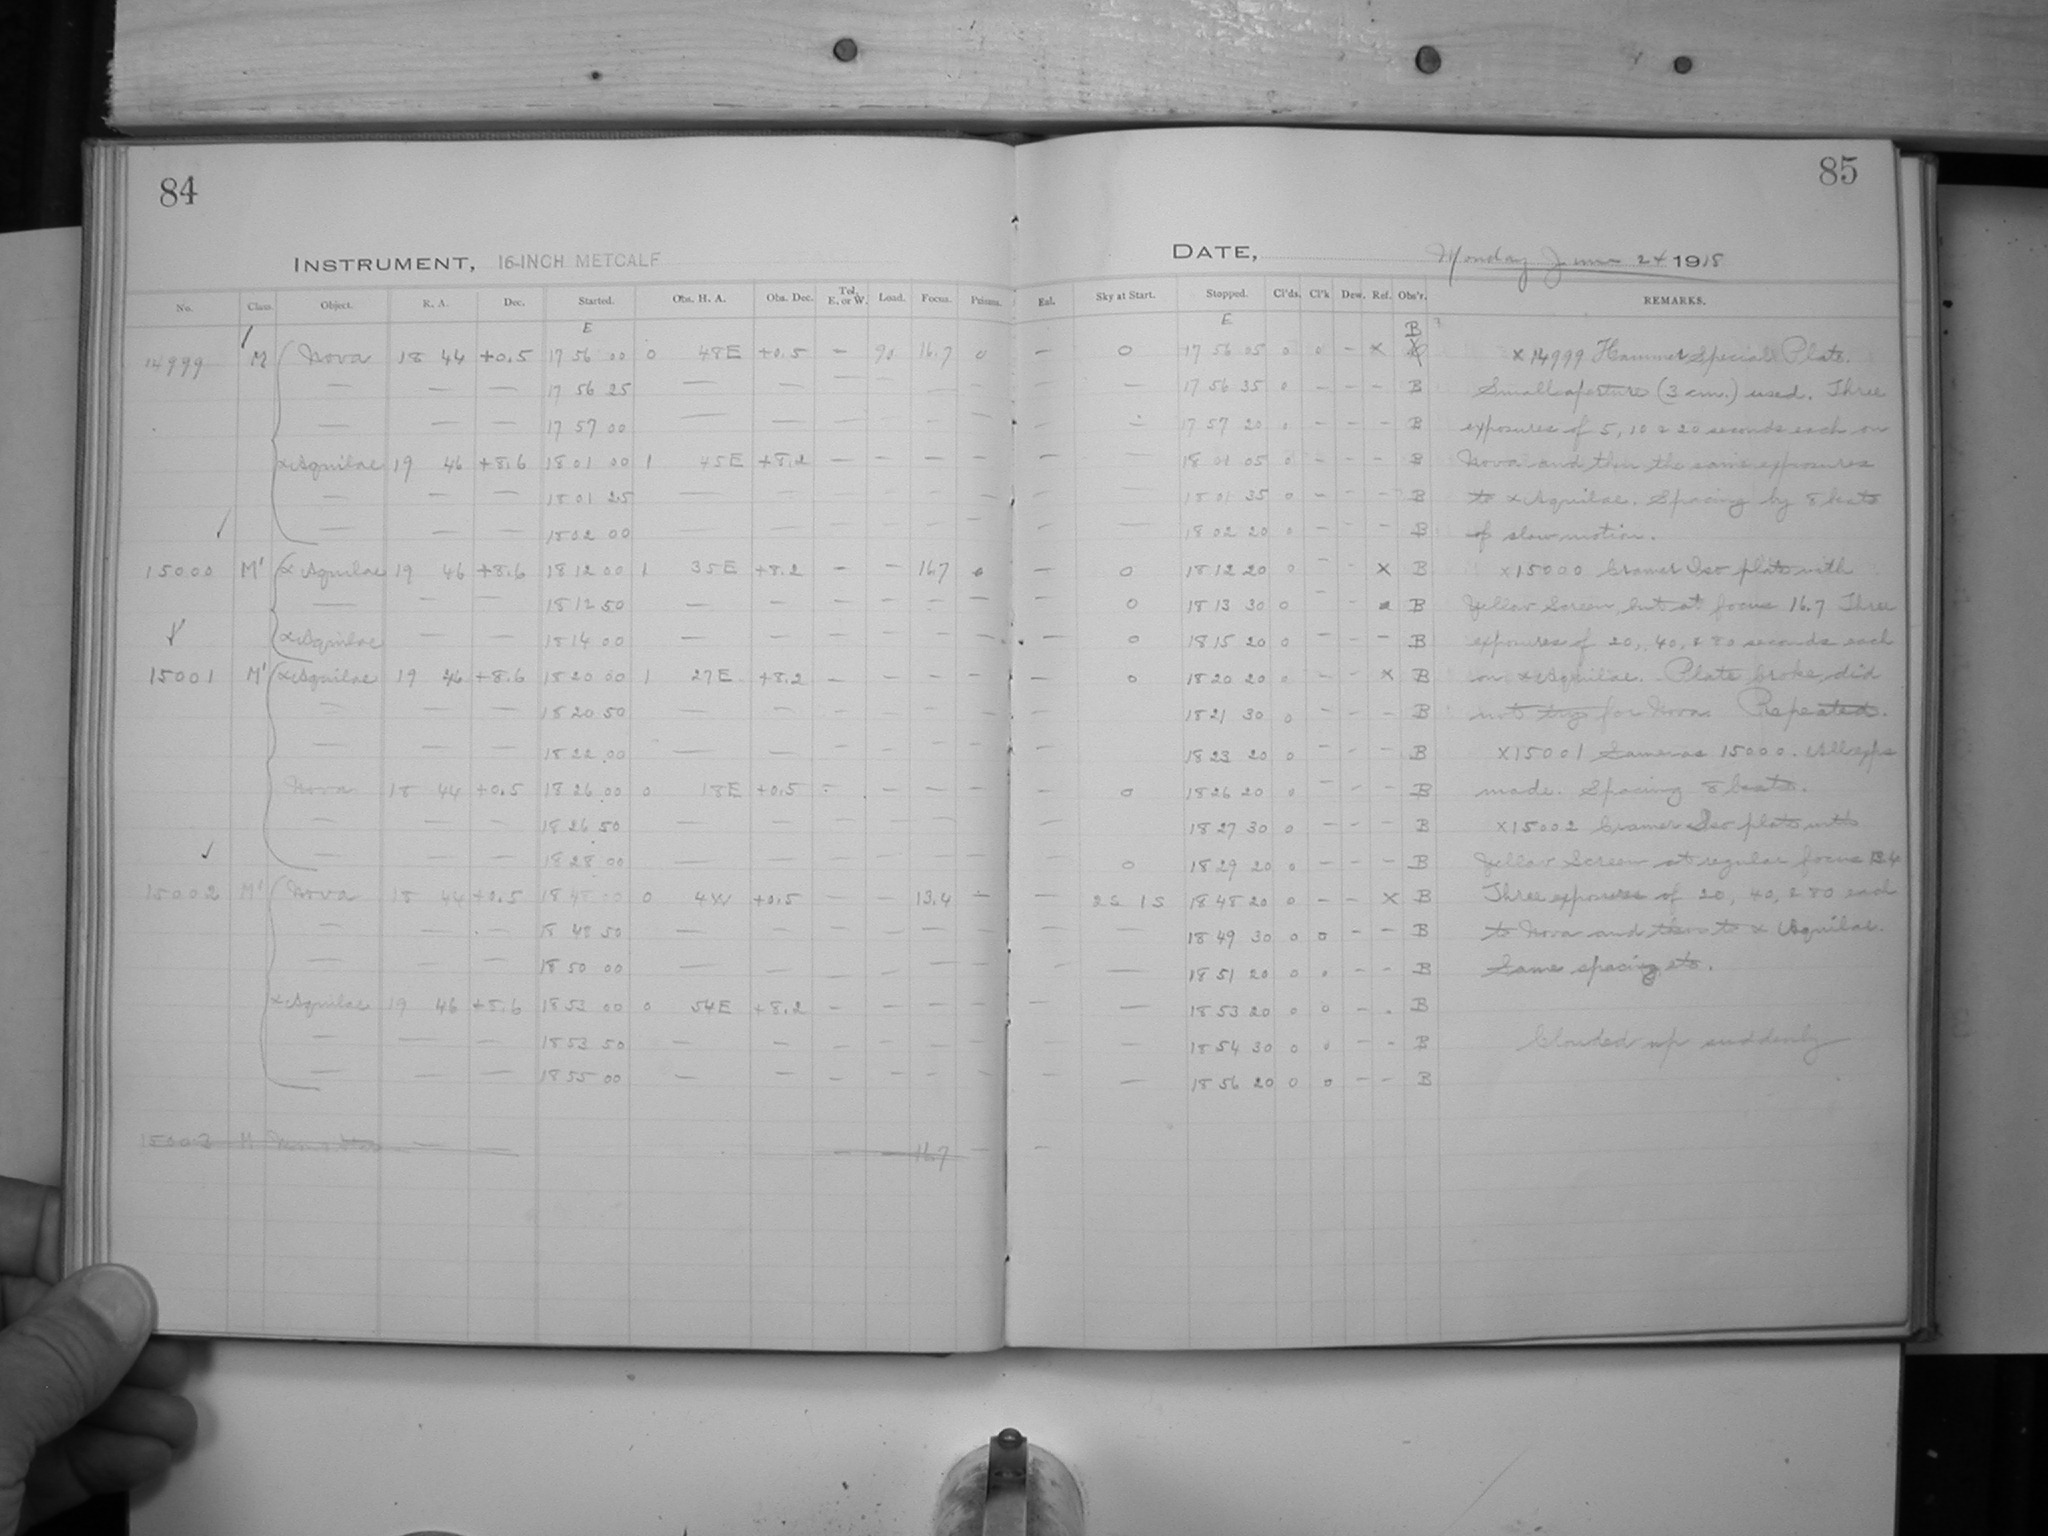 84
INSTRUMENT, 16-INCH METCALF
No. Class. Object. R. A. Dec. Started. Obs. H. A. Obs. Dec. Tel. E. or W. Load. Focus. Prisms.
E
14999 M Nova 18 44 +0.5 17 56 00 0 48E +0.5 — 90 16.7 0
— — — 17 56 25 — — — — — —
— — — 17 57 00 — — — — — —
α Aquilae 19 46 +8.6 18 01 00 1 45E +8.2 — — — —
— — — 18 01 25 — — — — — —
— — — 18 02 00 — — — — — —
15000 M' α Aquilae 19 46 +8.6 18 12 00 1 35E +8.2 — — 16.7 0
— — — 18 12 50 — — — — — —
α Aquilae — — 18 14 00 — — — — — —
15001 M' α Aquilae 19 46 +8.6 18 20 00 1 27E +8.2 — — — —
— — — 18 20 50 — — — — — —
— — — 18 22 00 — — — — — —
Nova 18 44 +0.5 18 26 00 0 18E +0.5 — — — —
— — — 18 26 50 — — — — — —
— — — 18 28 00 — — — — — —
15002 M' Nova 18 44 +0.5 18 48 00 0 4W +0.5 — — 13.4 —
— — — 18 48 50 — — — — — —
— — — 18 50 00 — — — — — —
α Aquilae 19 46 +8.6 18 53 00 0 54E +8.2 — — — —
— — — 18 53 50 — — — — — —
— — — 18 55 00 — — — — — —
15003 M — — — — 16.7 —
85
DATE, Monday June 24 1918
Enl. Sky at Start. Stopped. Cl'ds. Cl'k Dew. Ref. Obs'r. REMARKS.
E B
— 0 17 56 05 0 0 — x x 14999 Hammer Special Plate.
— — 17 56 35 0 — — — B Small aperture (3 cm.) used. Three
— — 17 57 20 0 — — — B exposures of 5, 10 & 20 seconds each on
— — 18 01 05 0 — — — B Nova and then the same exposures
— — 18 01 35 0 — — — B to α Aquilae. Spacing by 8 beats
— — 18 02 20 0 — — — B of slow motion.
— 0 18 12 20 0 — — x B x15000 Cramer Iso plate with
— 0 18 13 30 0 — — B Yellow Screen, but at focus 16.7 Three
— 0 18 15 20 0 — — — B exposures of 20, 40, & 80 seconds each
— 0 18 20 20 0 — — x B on α Aquilae. Plate broke, did
— 18 21 30 0 — — — B not try for Nova. Repeated.
— 18 23 20 0 — — — B x15001 Same as 15000. All exps
— 0 18 26 20 0 — — — B made. Spacing 8 beats.
— 18 27 30 0 — — — B x15002 Cramer Iso plate with
— 0 18 29 20 0 — — — B Yellow Screen at regular focus 13.4
— 2S 1S 18 48 20 0 — — x B Three exposures of 20, 40, & 80 each
— — 18 49 30 0 0 — — B to Nova and then to α Aquilae.
— 18 51 20 0 0 — — B Same spacing etc.
— — 18 53 20 0 0 — — B
— 18 54 30 0 0 — — B Clouded up suddenly
— — 18 56 20 0 0 — — B